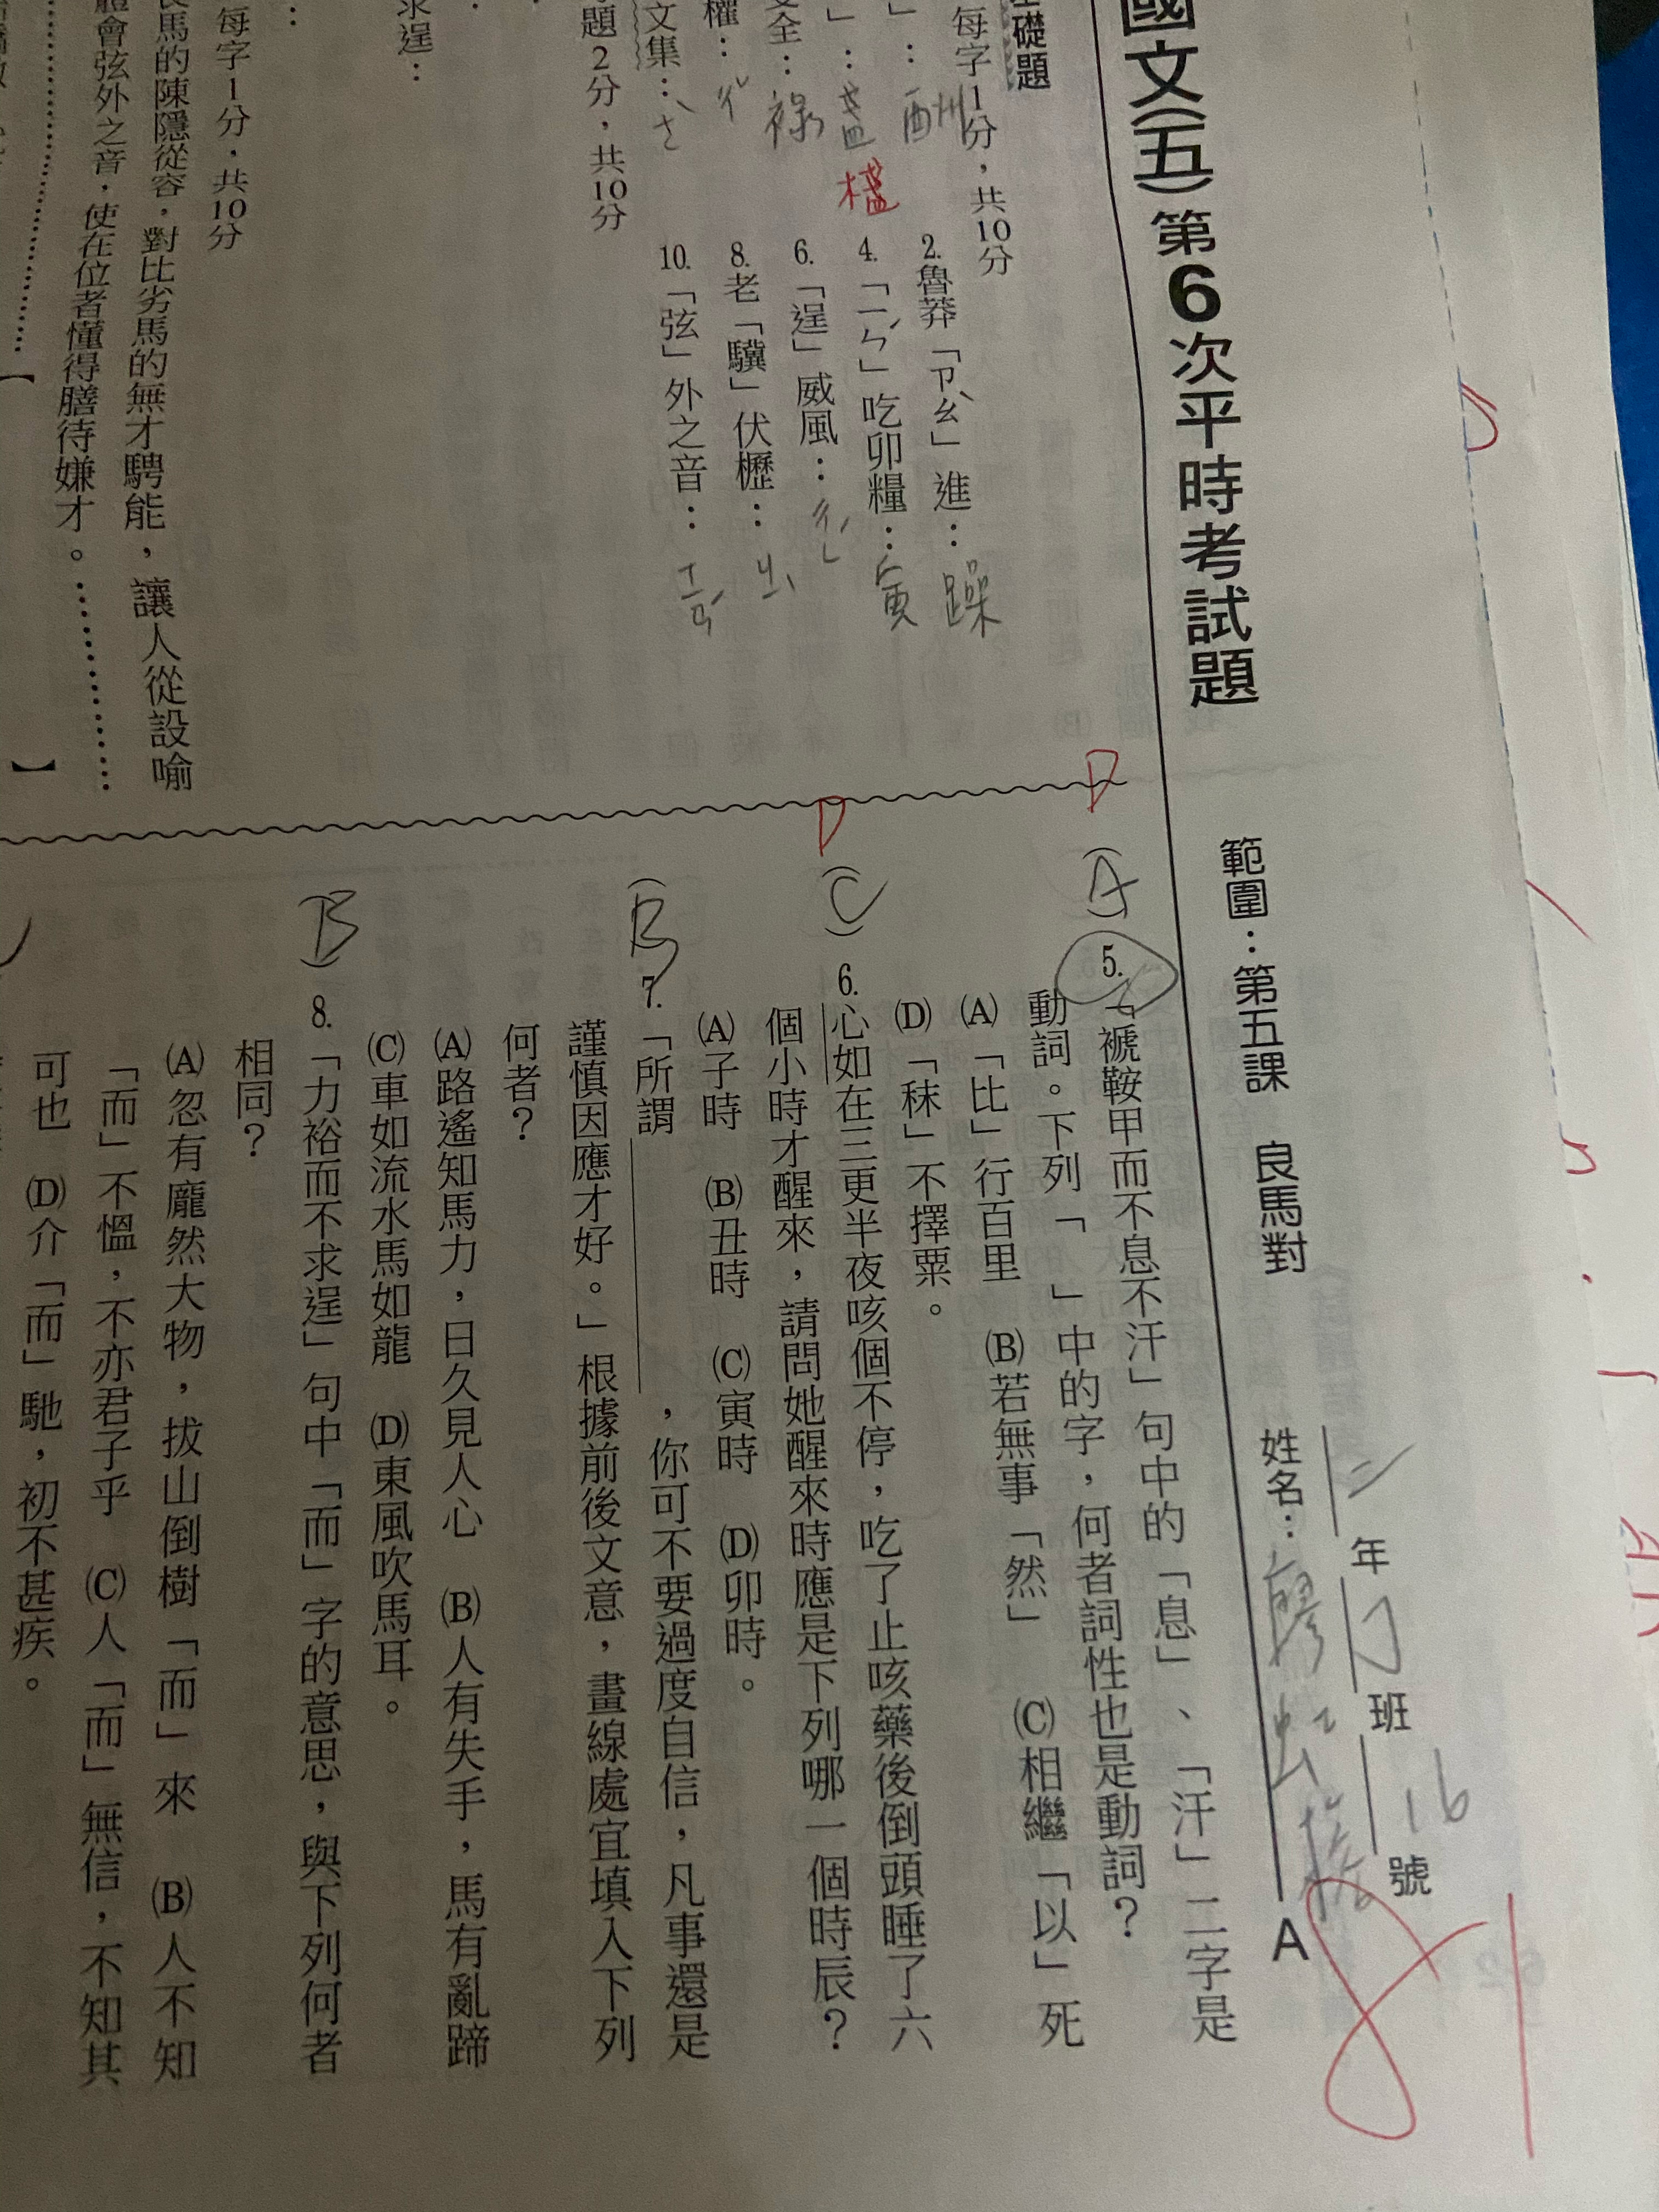 國文(五)第6次平時考試題
範圍：第五課　良馬對
年　班　16號
姓名：
A
81
基礎題
每字1分，共10分
」：酬
2.魯莽「ㄗㄠˋ」進：躁
」：盍 榼
4.「ㄧㄣˊ」吃卯糧：寅
全：祿
6.「逞」威風：ㄔㄥˇ
權：ㄔˇ
8.老「驥」伏櫪：ㄐㄧˋ
文集：ㄜˋ
10.「弦」外之音：ㄒㄧㄢˊ
題2分，共10分
求逞：
每字1分，共10分
良馬的陳隱從容，對比劣馬的無才騁能，讓人從設喻
體會弦外之音，使在位者懂得膳待嫌才。…………
【　】
D
(A) 5.「褫鞍甲而不息不汗」句中的「息」、「汗」二字是
動詞。下列「　」中的字，何者詞性也是動詞？
(A)「比」行百里　(B)若無事「然」　(C)相繼「以」死
(D)「秣」不擇粟。
D
(C) 6.心如在三更半夜咳個不停，吃了止咳藥後倒頭睡了六
個小時才醒來，請問她醒來時應是下列哪一個時辰？
(A)子時　(B)丑時　(C)寅時　(D)卯時。
(B) 7.「所謂　　　　，你可不要過度自信，凡事還是
謹慎因應才好。」根據前後文意，畫線處宜填入下列
何者？
(A)路遙知馬力，日久見人心　(B)人有失手，馬有亂蹄
(C)車如流水馬如龍　(D)東風吹馬耳。
(B) 8.「力裕而不求逞」句中「而」字的意思，與下列何者
相同？
(A)忽有龐然大物，拔山倒樹「而」來　(B)人不知
「而」不慍，不亦君子乎　(C)人「而」無信，不知其
可也　(D)介「而」馳，初不甚疾。